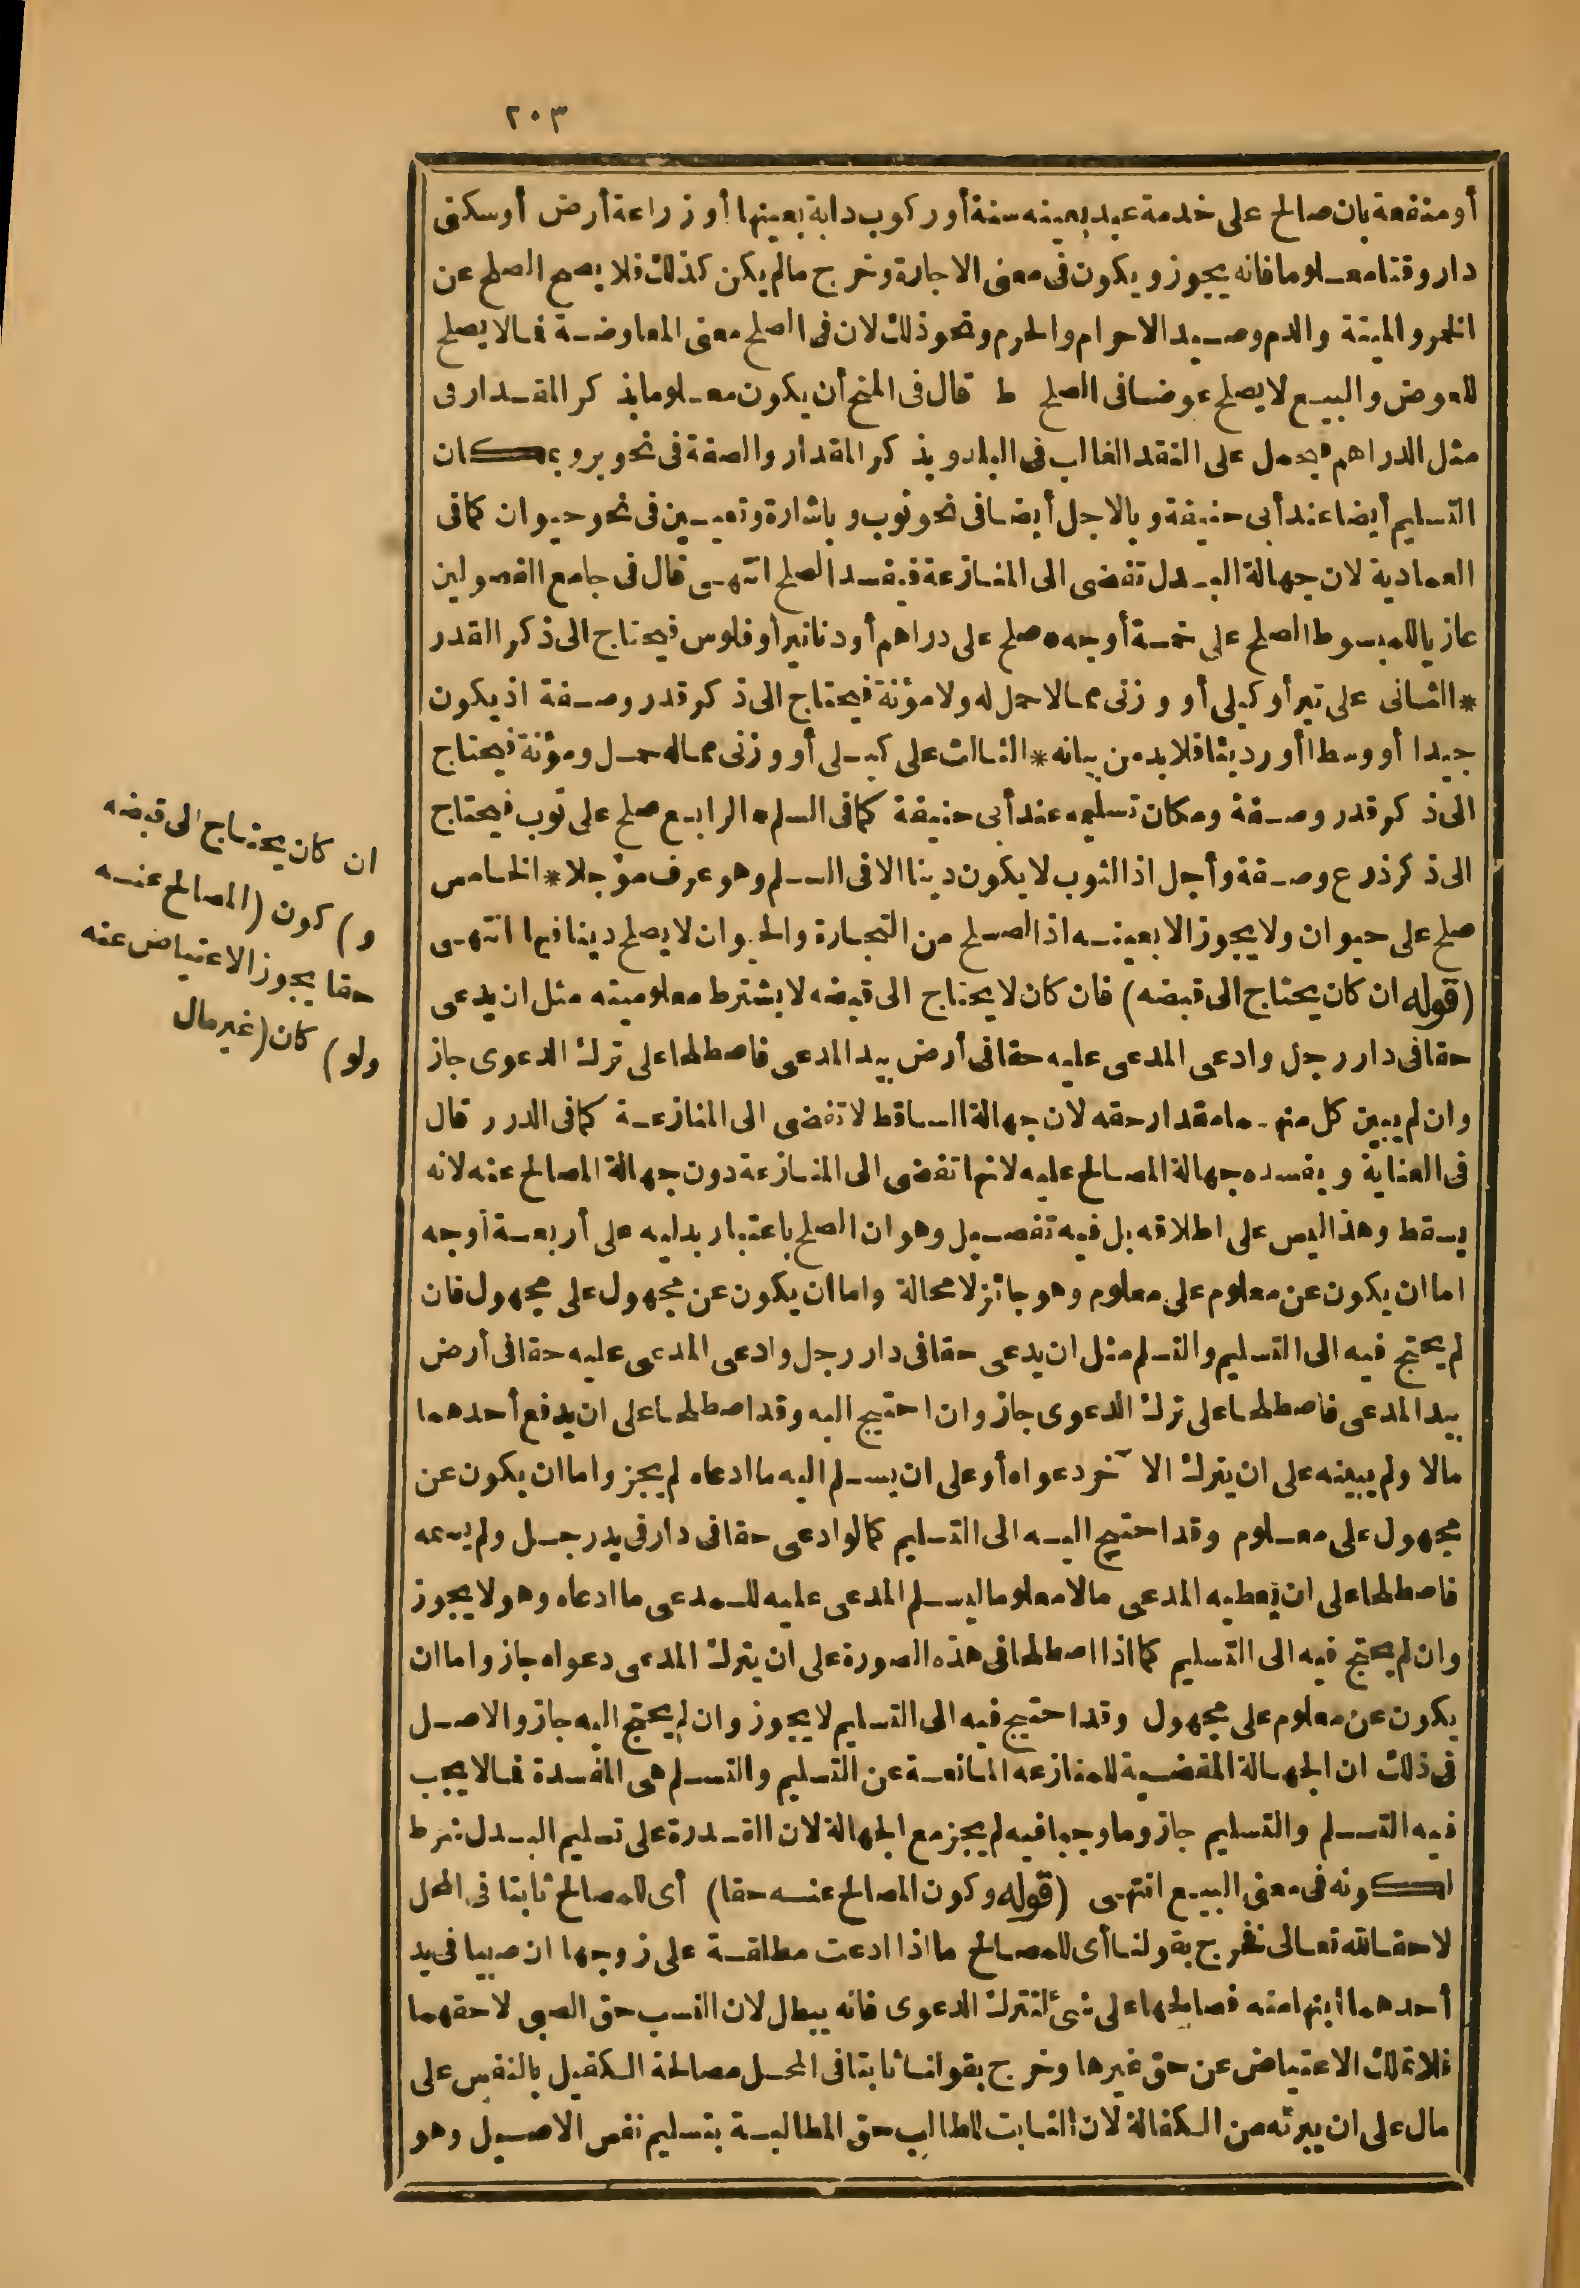 ٢٠٣
أو منفعة بان صالح على خدمة عبد بعينه سنة أو ركوب دابة بعينها أو زراعة أرض أو سكنى
دار وقتا معلوما فانه يجوز ويكون فى معنى الاجارة وخرج ما لم يكن كذلك فلا يصح الصلح عن
الخمر والميتة والدم وصيد الاحرام والحرم ونحو ذلك لان فى الصلح معنى المعاوضة فما لا يصلح
للعوض والبيع لا يصلح عوضا فى الصلح ط قال فى المنح أن يكون معلوما بذكر المقدار فى
مثل الدراهم فيحمل على النقد الغالب فى البلد وبذكر المقدار والصفة فى نحو بر وبمكان
التسليم أيضا عند أبى حنيفة وبالاجل أيضا فى نحو ثوب وباشارة وتعيين فى نحو حيوان كما فى
العمادية لان جهالة البدل تفضى الى المنازعة فيفسد الصلح انتهى قال فى جامع الفصولين
عازيا للمبسوط الصلح على خمسة أوجه * صلح على دراهم أو دنانير أو فلوس فيحتاج الى ذكر القدر
* الثانى على تبر أو كيلى أو وزنى مما لا حمل له ولا مؤنة فيحتاج الى ذكر قدر وصفة اذ يكون
جيدا أو وسطا أو رديئا فلا بد من بيانه * الثالث على كيلى أو وزنى مما له حمل ومؤنة فيحتاج
الى ذكر قدر وصفة ومكان تسليمه عند أبى حنيفة كما فى السلم * الرابع صلح على ثوب فيحتاج
الى ذكر ذرع وصفة وأجل اذ الثوب لا يكون دينا الا فى السلم وهو عرف مؤجلا * الخامس
صلح على حيوان ولا يجوز الا بعينه اذ الصلح من التجارة والحيوان لا يصلح دينا فيها انتهى
(قوله ان كان يحتاج الى قبضه) فان كان لا يحتاج الى قبضه لا يشترط معلوميته مثل ان يدعى
حقا فى دار رجل وادعى المدعى عليه حقا فى أرض بيد المدعى فاصطلحا على ترك الدعوى جاز
وان لم يبين كل منهما مقدار حقه لان جهالة الساقط لا تفضى الى المنازعة كما فى الدرر قال
فى العناية ويفسده جهالة المصالح عليه لانها تفضى الى المنازعة دون جهالة المصالح عنه لانه
يسقط وهذا ليس على اطلاقه بل فيه تفصيل وهو ان الصلح باعتبار بدليه على أربعة أوجه
اما ان يكون عن معلوم على معلوم وهو جائز لا محالة واما ان يكون عن مجهول على مجهول فان
لم يحتج فيه الى التسليم والتسلم مثل ان يدعى حقا فى دار رجل وادعى المدعى عليه حقا فى أرض
بيد المدعى فاصطلحا على ترك الدعوى جاز وان احتيج اليه وقد اصطلحا على ان يدفع أحدهما
مالا ولم يبينه على ان يترك الآخر دعواه أو على ان يسلم اليه ما ادعاه لم يجز واما ان يكون عن
مجهول على معلوم وقد احتيج اليه الى التسليم كما لو ادعى حقا فى دار فى يد رجل ولم يسمه
فاصطلحا على ان يعطيه المدعى مالا معلوما ليسلم المدعى عليه للمدعى ما ادعاه وهو لا يجوز
وان لم يحتج فيه الى التسليم كما اذا اصطلحا فى هذه الصورة على ان يترك المدعى دعواه جاز واما ان
يكون عن معلوم على مجهول وقد احتيج فيه الى التسليم لا يجوز وان لم يحتج اليه جاز والاصل
فى ذلك ان الجهالة المفضية للمنازعه المانعة عن التسليم والتسلم هى المفسدة فما لا يجب
فيه التسلم والتسليم جاز وما وجبا فيه لم يجز مع الجهالة لان القدرة على تسليم البدل شرط
لكونه فى معنى البيع انتهى (قوله وكون المصالح عنه حقا) أى للمصالح ثابتا فى المحل
لا حقا لله تعالى فخرج بقولنا أى للمصالح ما اذا ادعت مطلقة على زوجها ان صبيا فى يد
أحدهما ابنها منه فصالحها على شئ لتترك الدعوى فانه يبطل لان النسب حق الصبى لا حقهما
فلا تملك الاعتياض عن حق غيرها وخرج بقولنا ثابتا فى المحل مصالحة الكفيل بالنفس على
مال على ان يبرئه من الكفالة لان الثابت للطالب حق المطالبة بتسليم نفس الاصيل وهو
ان كان يحتاج الى قبضه
و) كون (المصالح عنه
حقا يجوز الاعتياض عنه
ولو) كان (غير مال